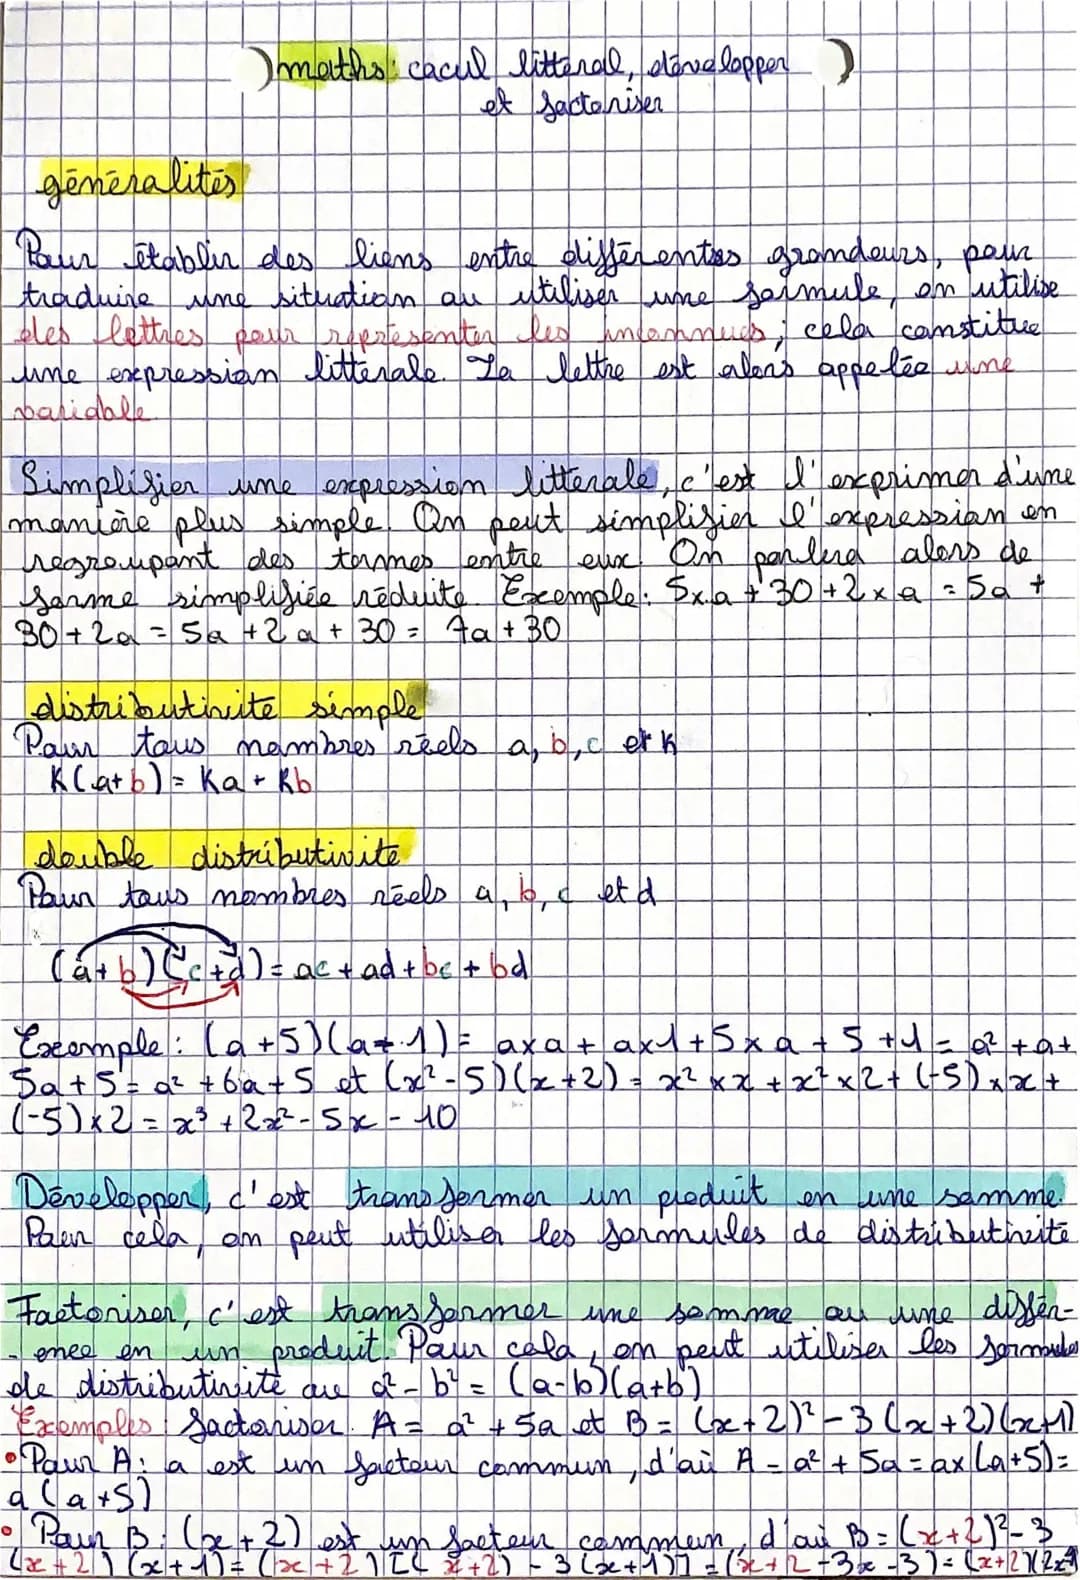 maths: cacul littéral, développer
et factoriser
généralités
Pour établir des liens entre différentes grandeurs, pour
traduire une situation ou utiliser une formule, on utilise
des lettres pour représenter les inconnues; cela constitue
une expression littérale. La lettre est alors appelée une
variable
Simplifier une expression littérale, c'est l'exprimer d'une
manière plus simple. On peut simplifier l'expression en
regroupant des termes entre eux. On parlera alors de
forme simplifiée réduite. Exemple: 5xa + 30 + 2 x a = 5a +
30 + 2a = 5a + 2a + 30 = 7a + 30
distributivité simple
Pour tous nombres réels a, b, c et k
K(a+b) = Ka + Kb
double distributivité
Pour tous nombres réels a, b, c et d
(a+b)(c+d) = ac + ad + bc + bd
Exemple: (a+5)(a+1) = axa + ax1 + 5xa + 5 +1 = a² + a +
5a + 5 = a² + 6a + 5 et (x²-5)(x+2) = x² x x + x² x 2 + (-5) x x +
(-5) x 2 = x³ + 2x² - 5x - 10
Développer, c'est transformer un produit en une somme.
Pour cela, on peut utiliser les formules de distributivité
Factoriser, c'est transformer une somme ou une différ-
-ence en un produit. Pour cela, on peut utiliser les formules
de distributivité ou a² - b² = (a-b)(a+b)
Exemples: factoriser. A = a² + 5a et B = (x+2)² - 3(x+2)(x+1)
• Pour A: a est un facteur commun, d'où A = a² + 5a = ax(a+5) =
a(a+5)
• Pour B: (x+2) est un facteur commun, d'où B = (x+2)² - 3
(x+2)(x+1) = (x+2)[(x+2) - 3(x+1)] = (x+2-3x-3) = (x+2)(2x